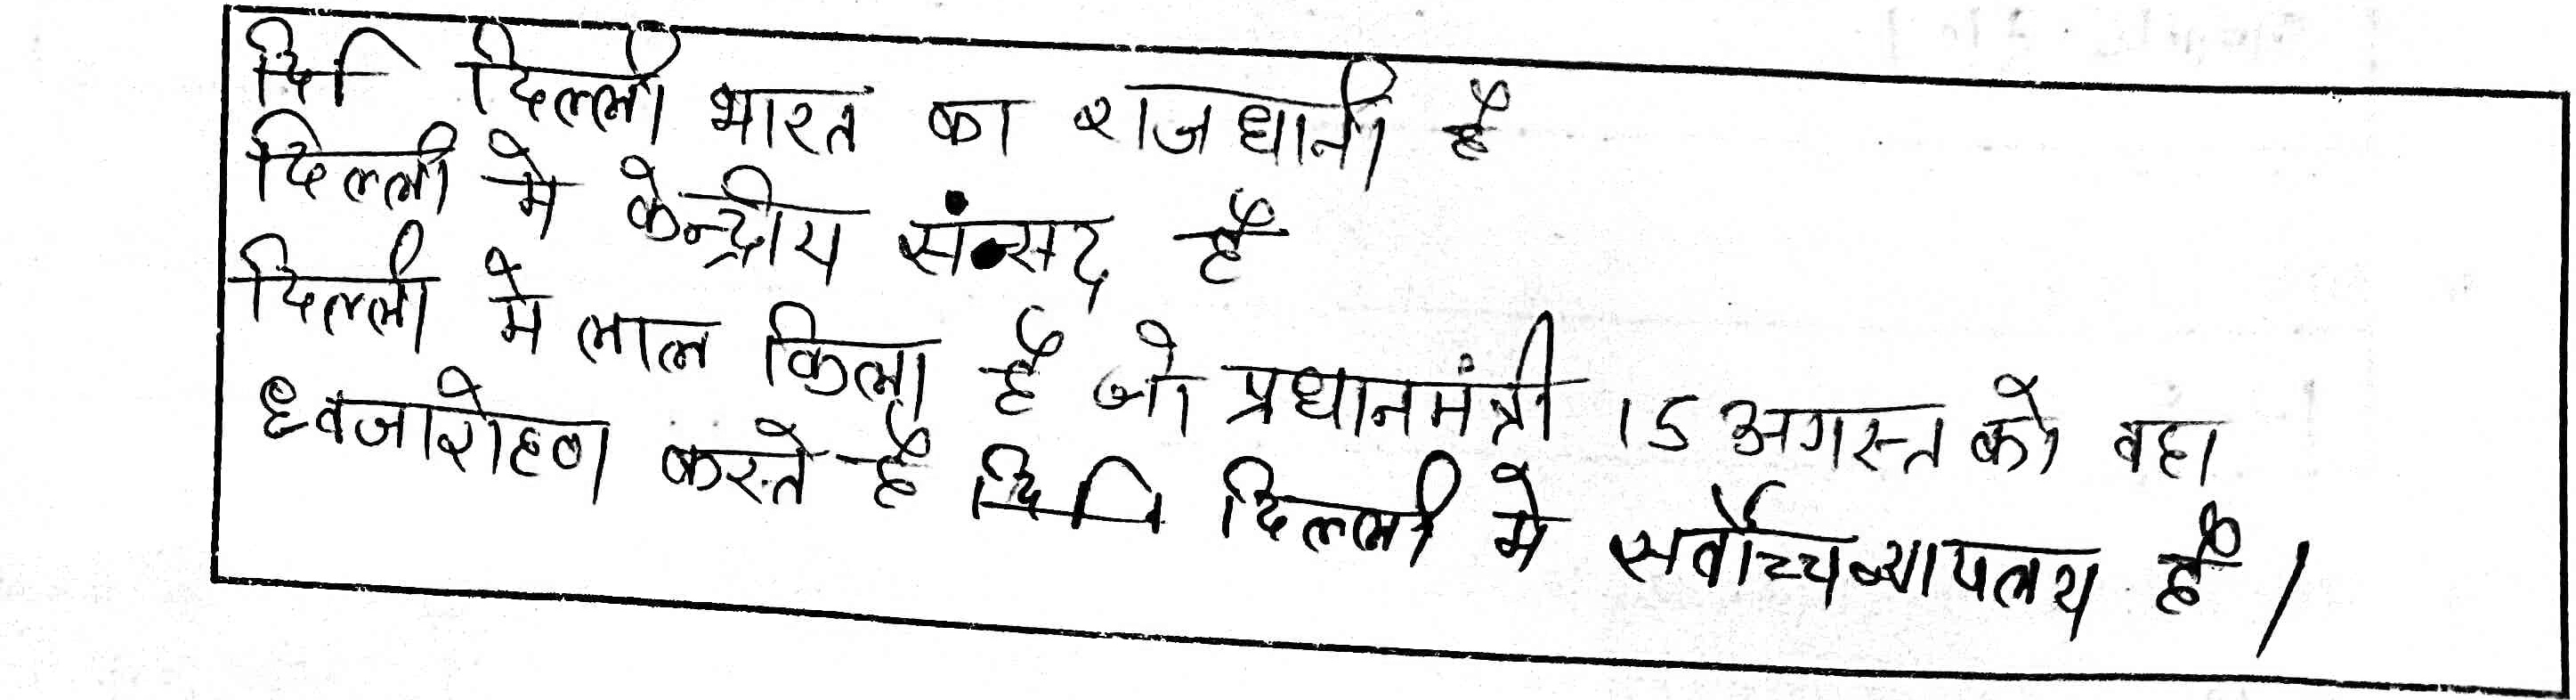 दिल्ली भारत का राजधानी है
दिल्ली मे केन्द्रीय संसद है
दिल्ली मे लाल किला है जो प्रधानमंत्री 15 अगस्त को वहा
ध्वजारोहण करते है दिल्ली मे सर्वोच्च न्यायलय है ।